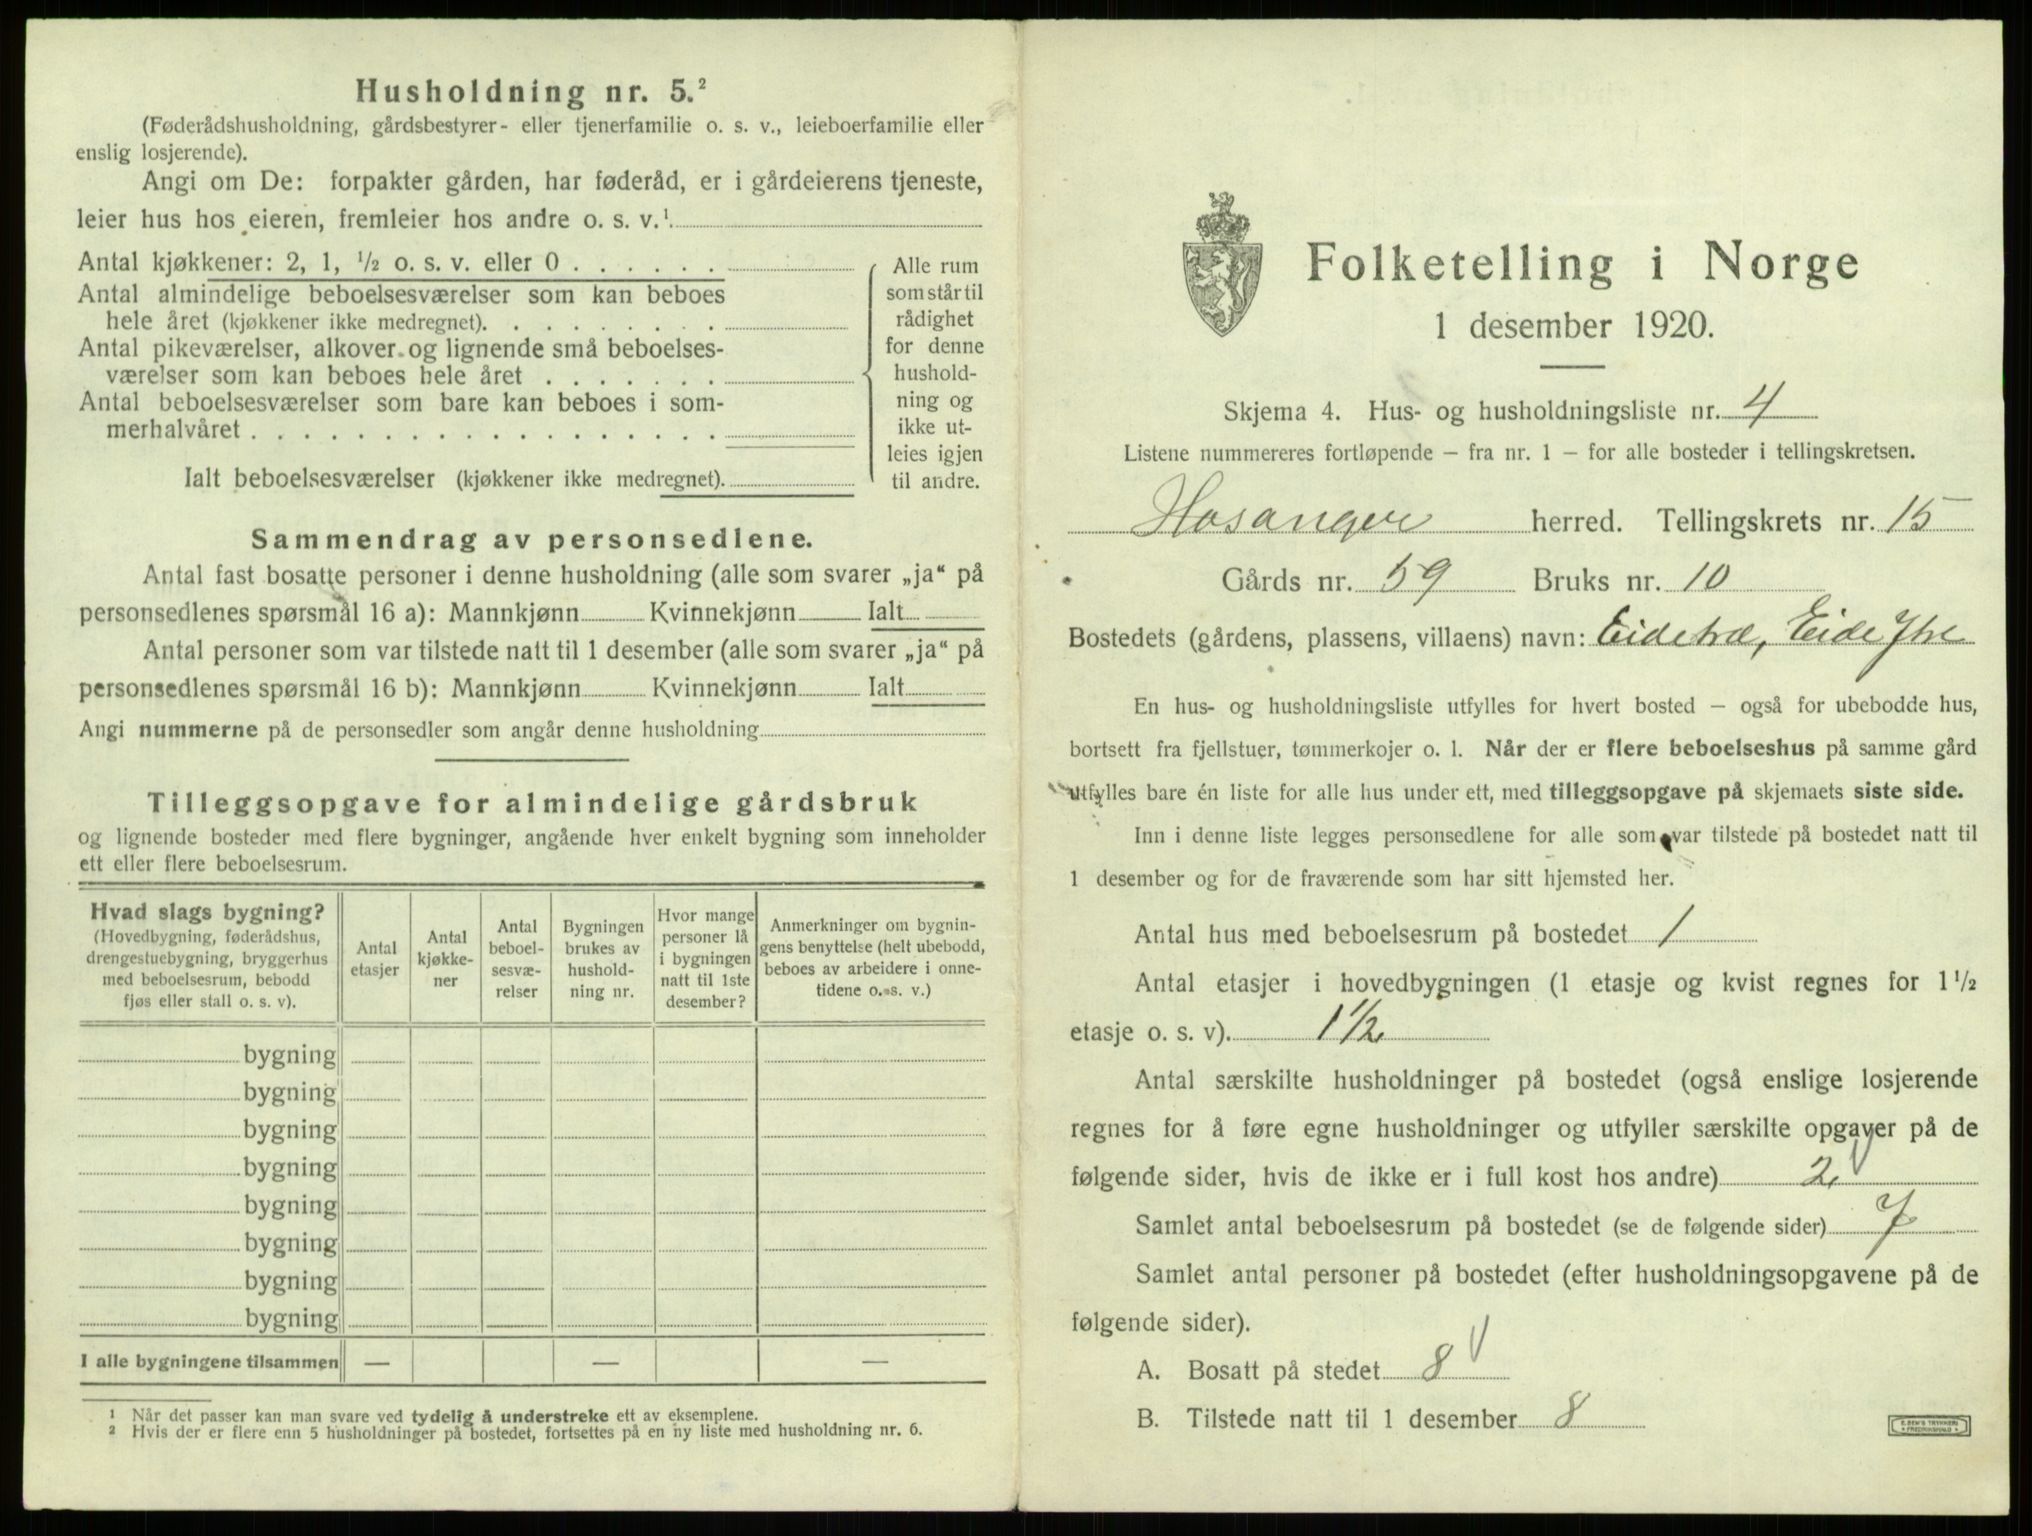 Husholdning nr. 5.²
(Føderådshusholdning, gårdsbestyrer- eller tjenerfamilie o. s. v., leieboerfamilie eller
enslig losjerende).
Angi om De: forpakter gården, har føderåd, er i gårdeierens tjeneste,
leier hus hos eieren, fremleier hos andre o. s. v.¹
Antal kjøkkener: 2, 1, ½ o. s. v. eller 0 . . . . . .
Antal almindelige beboelsesværelser som kan beboes
hele året (kjøkkener ikke medregnet). . . . . . . . .
Antal pikeværelser, alkover og lignende små beboelses-
værelser som kan beboes hele året . . . . . . .
Antal beboelsesværelser som bare kan beboes i som-
merhalvåret . . . . . . . . . . . . . . . . . .
Ialt beboelsesværelser (kjøkkener ikke medregnet).
Alle rum
som står til
rådighet
for denne
hushold-
ning og
ikke ut-
leies igjen
til andre.
Sammendrag av personsedlene.
Antal fast bosatte personer i denne husholdning (alle som svarer „ja“ på
personsedlenes spørsmål 16 a): Mannkjønn Kvinnekjønn Ialt
Antal personer som var tilstede natt til 1 desember (alle som svarer „ja“ på
personsedlenes spørsmål 16 b): Mannkjønn Kvinnekjønn Ialt
Angi nummerne på de personsedler som angår denne husholdning
Tilleggsopgave for almindelige gårdsbruk
og lignende bosteder med flere bygninger, angående hver enkelt bygning som inneholder
ett eller flere beboelsesrum.
Hvad slags bygning?
(Hovedbygning, føderådshus,
drengestuebygning, bryggerhus
med beboelsesrum, bebodd
fjøs eller stall o. s. v).
Antal
etasjer
Antal
kjøkke-
ner
Antal
beboel-
sesvæ-
relser
Bygningen
brukes av
hushold-
ning nr.
Hvor mange
personer lå
i bygningen
natt til 1ste
desember?
Anmerkninger om bygnin-
gens benyttelse (helt ubebodd,
beboes av arbeidere i onne-
tidene o. s. v.)
bygning
bygning
bygning
bygning
bygning
bygning
bygning
bygning
I alle bygningene tilsammen — — —
¹ Når det passer kan man svare ved tydelig å understreke ett av eksemplene.
² Hvis der er flere enn 5 husholdninger på bostedet, fortsettes på en ny liste med husholdning nr. 6.
Folketelling i Norge
1 desember 1920.
Skjema 4. Hus- og husholdningsliste nr. 4
Listene nummereres fortløpende — fra nr. 1 — for alle bosteder i tellingskretsen.
Hosanger herred. Tellingskrets nr. 15
Gårds nr. 59 Bruks nr. 10
Bostedets (gårdens, plassens, villaens) navn: Eidetræ, Eide Ytre
En hus- og husholdningsliste utfylles for hvert bosted — også for ubebodde hus,
bortsett fra fjellstuer, tømmerkojer o. l. Når der er flere beboelseshus på samme gård
utfylles bare én liste for alle hus under ett, med tilleggsopgave på skjemaets siste side.
Inn i denne liste legges personsedlene for alle som var tilstede på bostedet natt til
1 desember og for de fraværende som har sitt hjemsted her.
Antal hus med beboelsesrum på bostedet 1
Antal etasjer i hovedbygningen (1 etasje og kvist regnes for 1½
etasje o. s. v). 1½
Antal særskilte husholdninger på bostedet (også enslige losjerende
regnes for å føre egne husholdninger og utfyller særskilte opgaver på de
følgende sider, hvis de ikke er i full kost hos andre) 2
Samlet antal beboelsesrum på bostedet (se de følgende sider) 7
Samlet antal personer på bostedet (efter husholdningsopgavene på de
følgende sider).
A. Bosatt på stedet 8
B. Tilstede natt til 1 desember 8